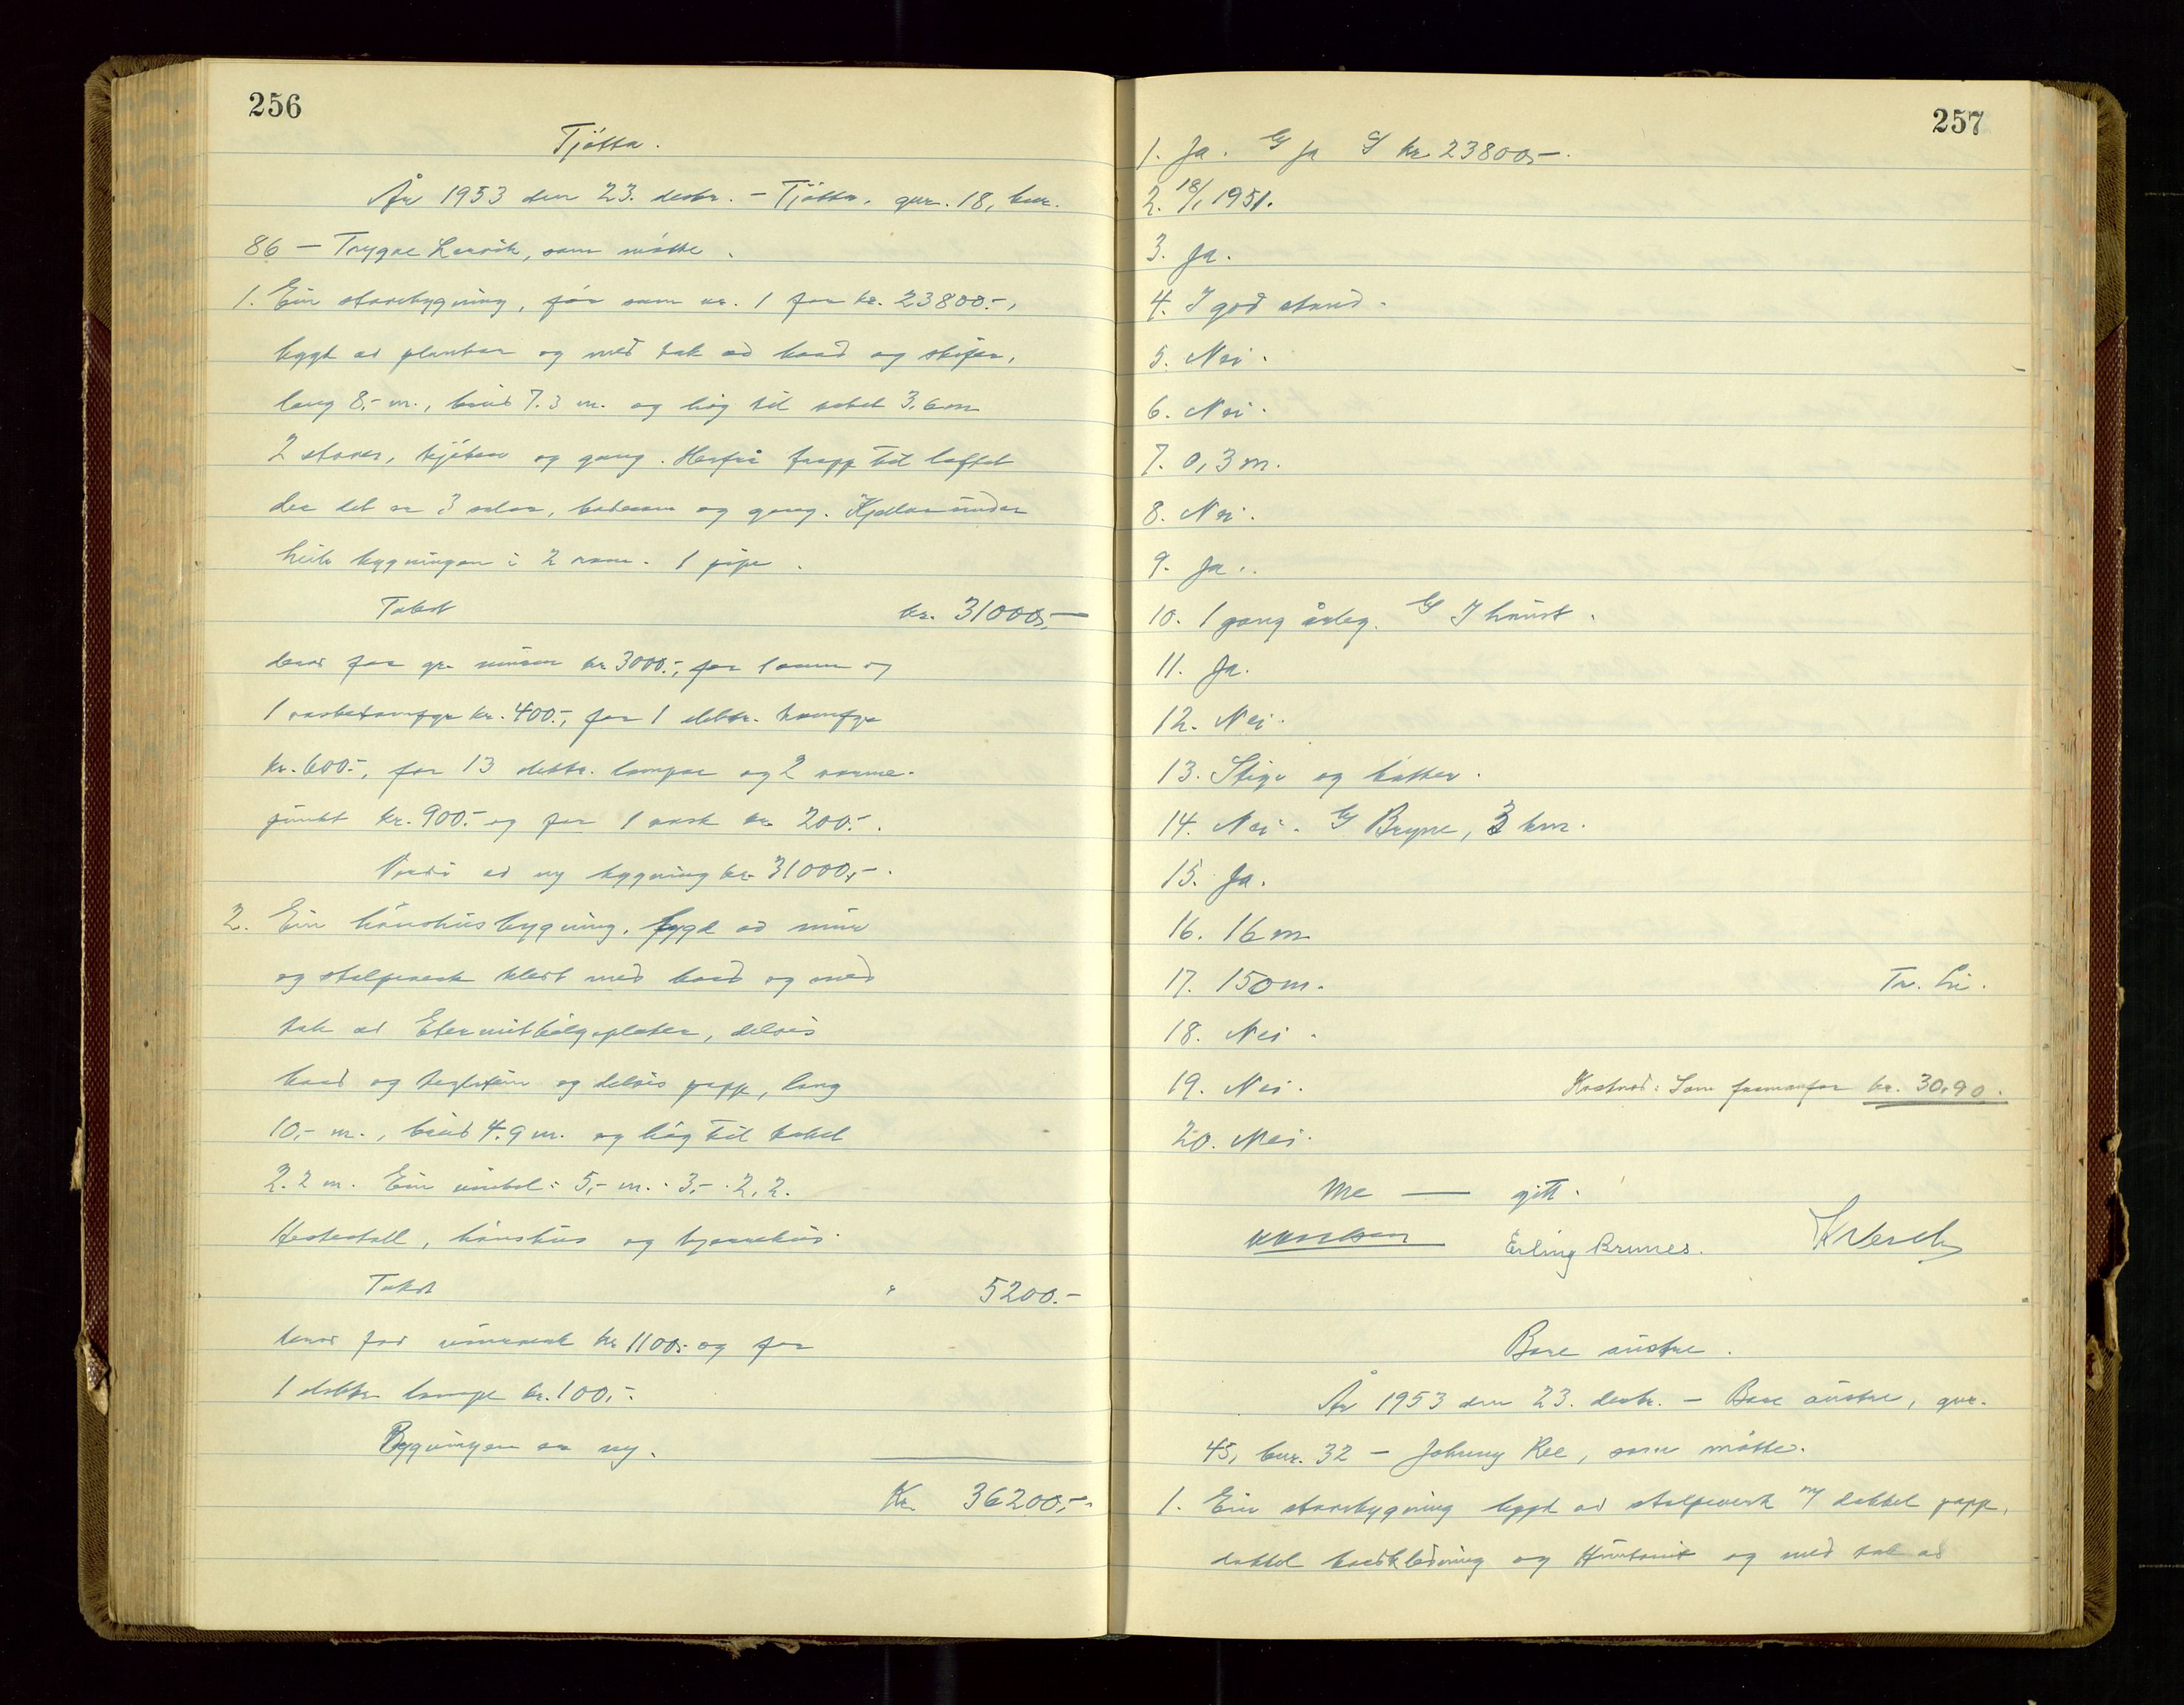 256
Tjøtta.
År 1953 den 23. desbr. - Tjøtta, gnr. 18, bnr.
86 - Trygve Lervik, som møtte.
1. Ein stovebygning, før som nr. 1 for kr. 23800.-,
bygt av plankar og med tak av bord og skifer,
lang 8,- m., breid 7.3 m. og høg til taket 3,6 m
2 stover, kjøken og gang. Herfrå trapp til loftet
der det er 3 soler, baderom og gang. Kjellar under
heile bygningen i 2 rom. 1 pipe.
Takst kr. 31000,-
herav for gr. muren kr 3000.-, for 1 omn og
1 kr. 400.-, for 1 elektr. komfyr
kr. 600.-, for 13 elektr. lampar og 2 varme-
punkt kr. 900.- og for 1 vask kr. 200.-.
Verdi av ny bygning kr. 31000,-.
2. Ein hønshusbygning, bygd av mur
og stolpeverk kledt med bord og med
tak av Eternitbølgeplater, delvis
bord og teglstein og delvis papp, lang
10,- m., breid 4.9 m. og høg til taket
2.2 m. Ein vinkel: 5,- m. · 3,- · 2,2.
Hestestall, hønshus og bjørehus.
Takst " 5200.-
herav for murverk kr 1100,- og for
1 elektr. lampe kr. 100,-.
Bygningen er ny.
Kr. 36200,-
257
1. Ja. b/ ja c/ kr. 23800,-.
2. 18/1 1951.
3. Ja.
4. I god stand.
5. Nei.
6. Nei.
7. 0,3 m.
8. Nei.
9. Ja.
10. 1 gang årleg. b/ I haust.
11. Ja.
12. Nei.
13. Stige og bøtter.
14. Nei. b/ Bryne, 3 km.
15. Ja.
16. 16 m
17. 150 m. Tr. Li.
18. Nei.
19. Nei. Kostnad: Som framanfor kr. 30,90.
20. Nei.
Me — gitt.
Erling Brunes.
Bore austre.
År 1953 den 23. desbr. - Bore austre, gnr.
45, bnr. 32 - Johnny Ree, som møtte.
1. Ein stovebygning bygd av stolpeverk m/ dobbel papp,
dobbel bordkledning og Huntonit og med tak av